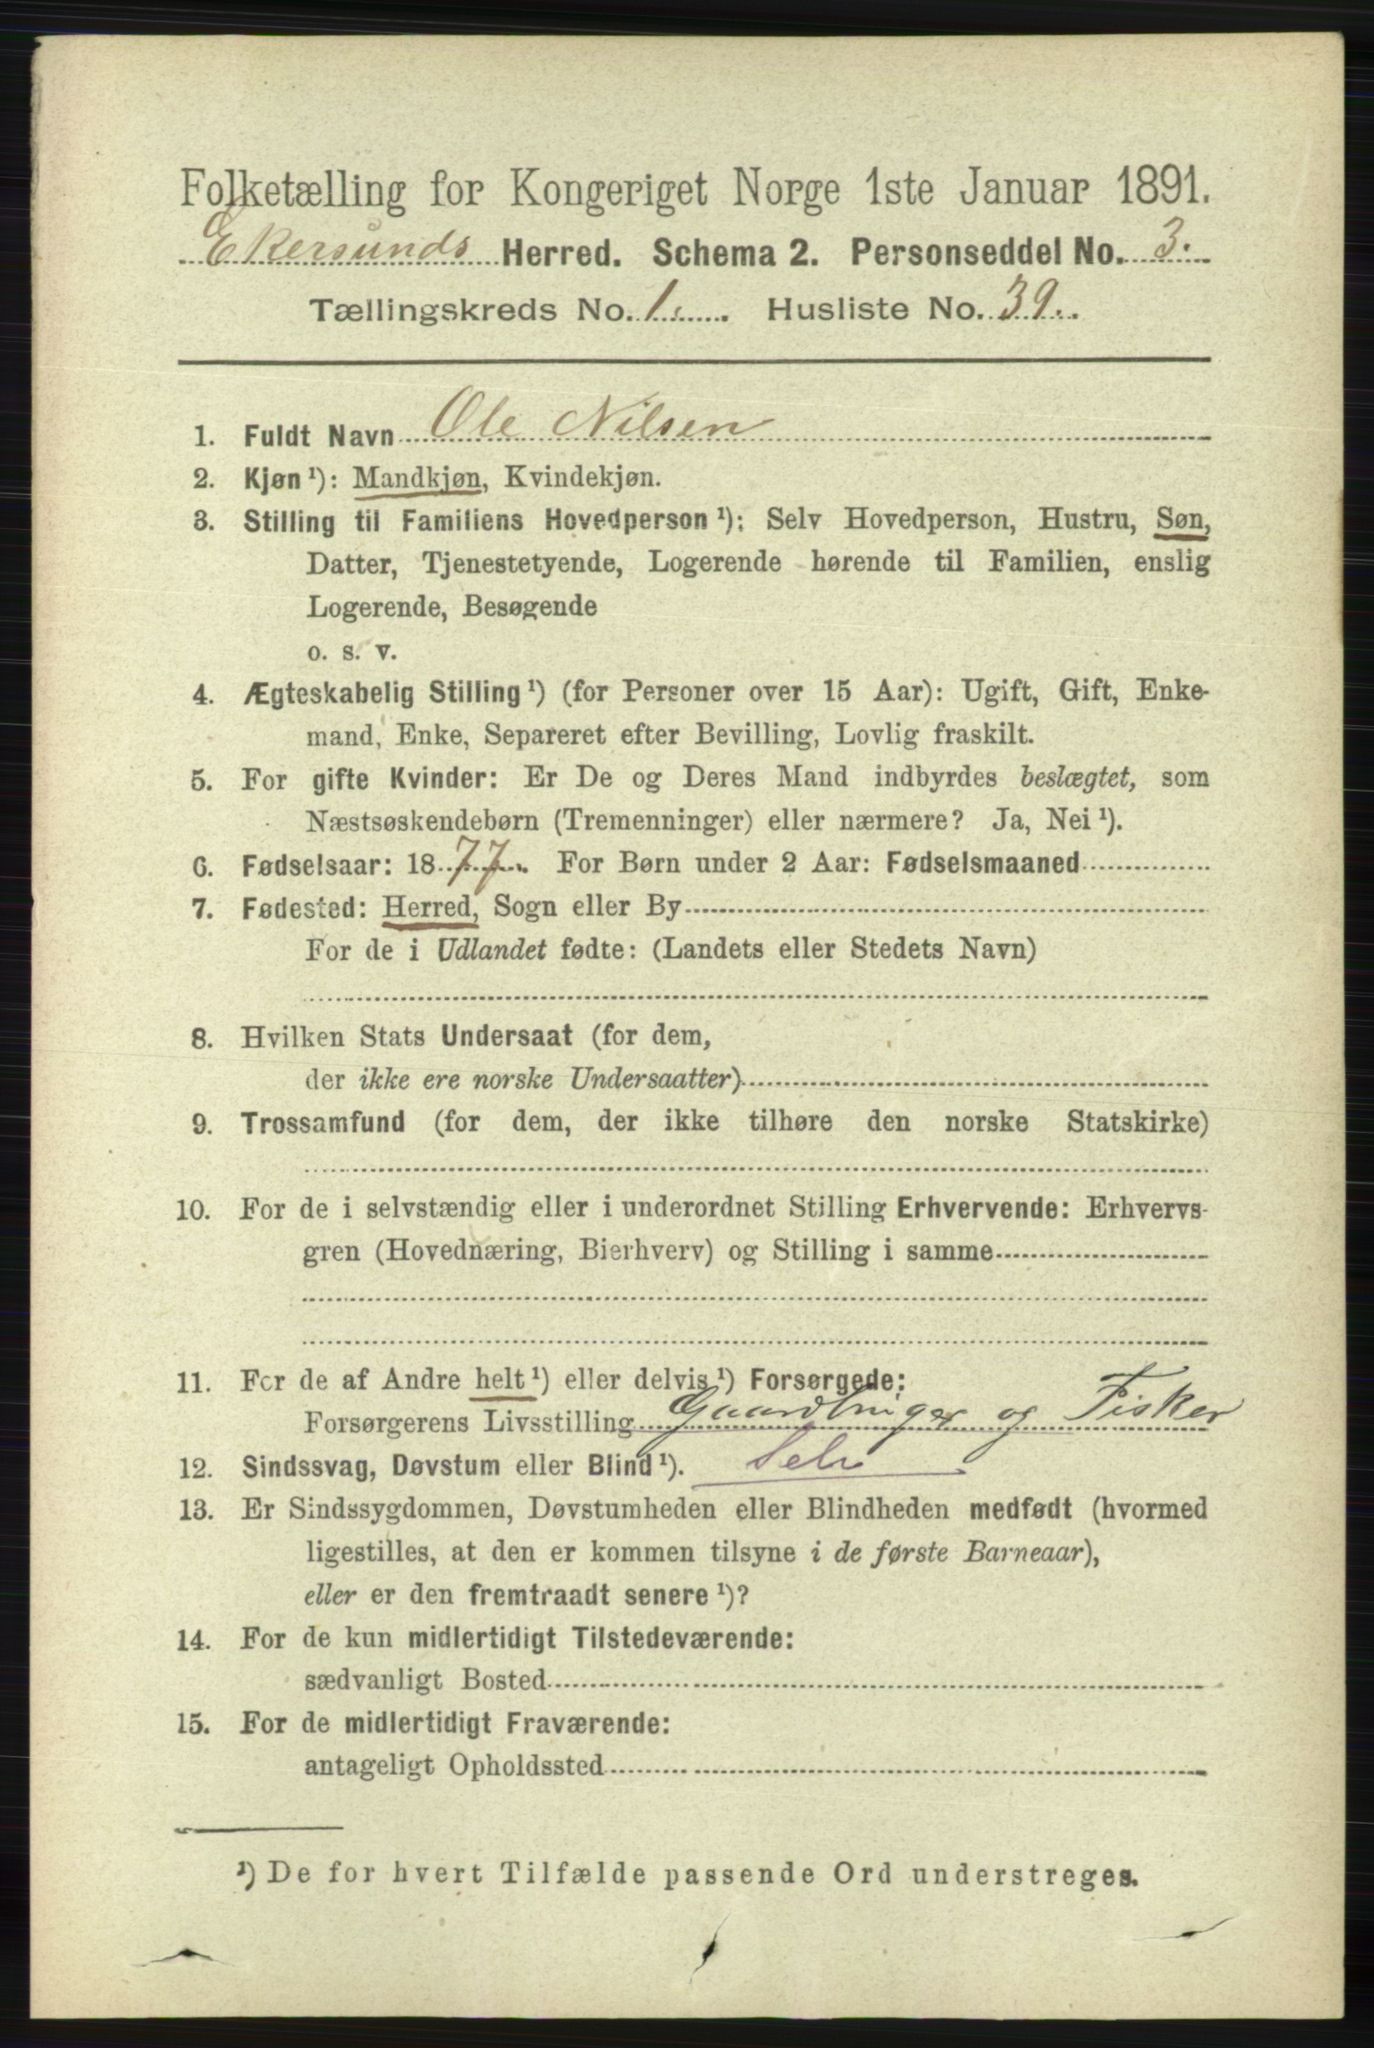 Folketælling for Kongeriget Norge 1ste Januar 1891.
Ekersunds Herred. Schema 2. Personseddel No. 3.
Tællingskreds No. 1. Husliste No. 39.
1. Fuldt Navn Ole Nilsen
2. Kjøn ¹): Mandkjøn, Kvindekjøn.
3. Stilling til Familiens Hovedperson ¹): Selv Hovedperson, Hustru, Søn,
Datter, Tjenestetyende, Logerende hørende til Familien, enslig
Logerende, Besøgende
o. s. v.
4. Ægteskabelig Stilling ¹) (for Personer over 15 Aar): Ugift, Gift, Enke-
mand, Enke, Separeret efter Bevilling, Lovlig fraskilt.
5. For gifte Kvinder: Er De og Deres Mand indbyrdes beslægtet, som
Næstsøskendebørn (Tremenninger) eller nærmere? Ja, Nei ¹).
6. Fødselsaar: 1877. For Børn under 2 Aar: Fødselsmaaned
7. Fødested: Herred, Sogn eller By
For de i Udlandet fødte: (Landets eller Stedets Navn)
8. Hvilken Stats Undersaat (for dem,
der ikke ere norske Undersaatter)
9. Trossamfund (for dem, der ikke tilhøre den norske Statskirke)
10. For de i selvstændig eller i underordnet Stilling Erhvervende: Erhvervs-
gren (Hovednæring, Bierhverv) og Stilling i samme
11. For de af Andre helt ¹) eller delvis ¹) Forsørgede:
Forsørgerens Livsstilling Gaardbruger og Fisker
12. Sindssvag, Døvstum eller Blind ¹). Selv
13. Er Sindssygdommen, Døvstumheden eller Blindheden medfødt (hvormed
ligestilles, at den er kommen tilsyne i de første Barneaar),
eller er den fremtraadt senere ¹)?
14. For de kun midlertidigt Tilstedeværende:
sædvanligt Bosted
15. For de midlertidigt Fraværende:
antageligt Opholdssted
¹) De for hvert Tilfælde passende Ord understreges.